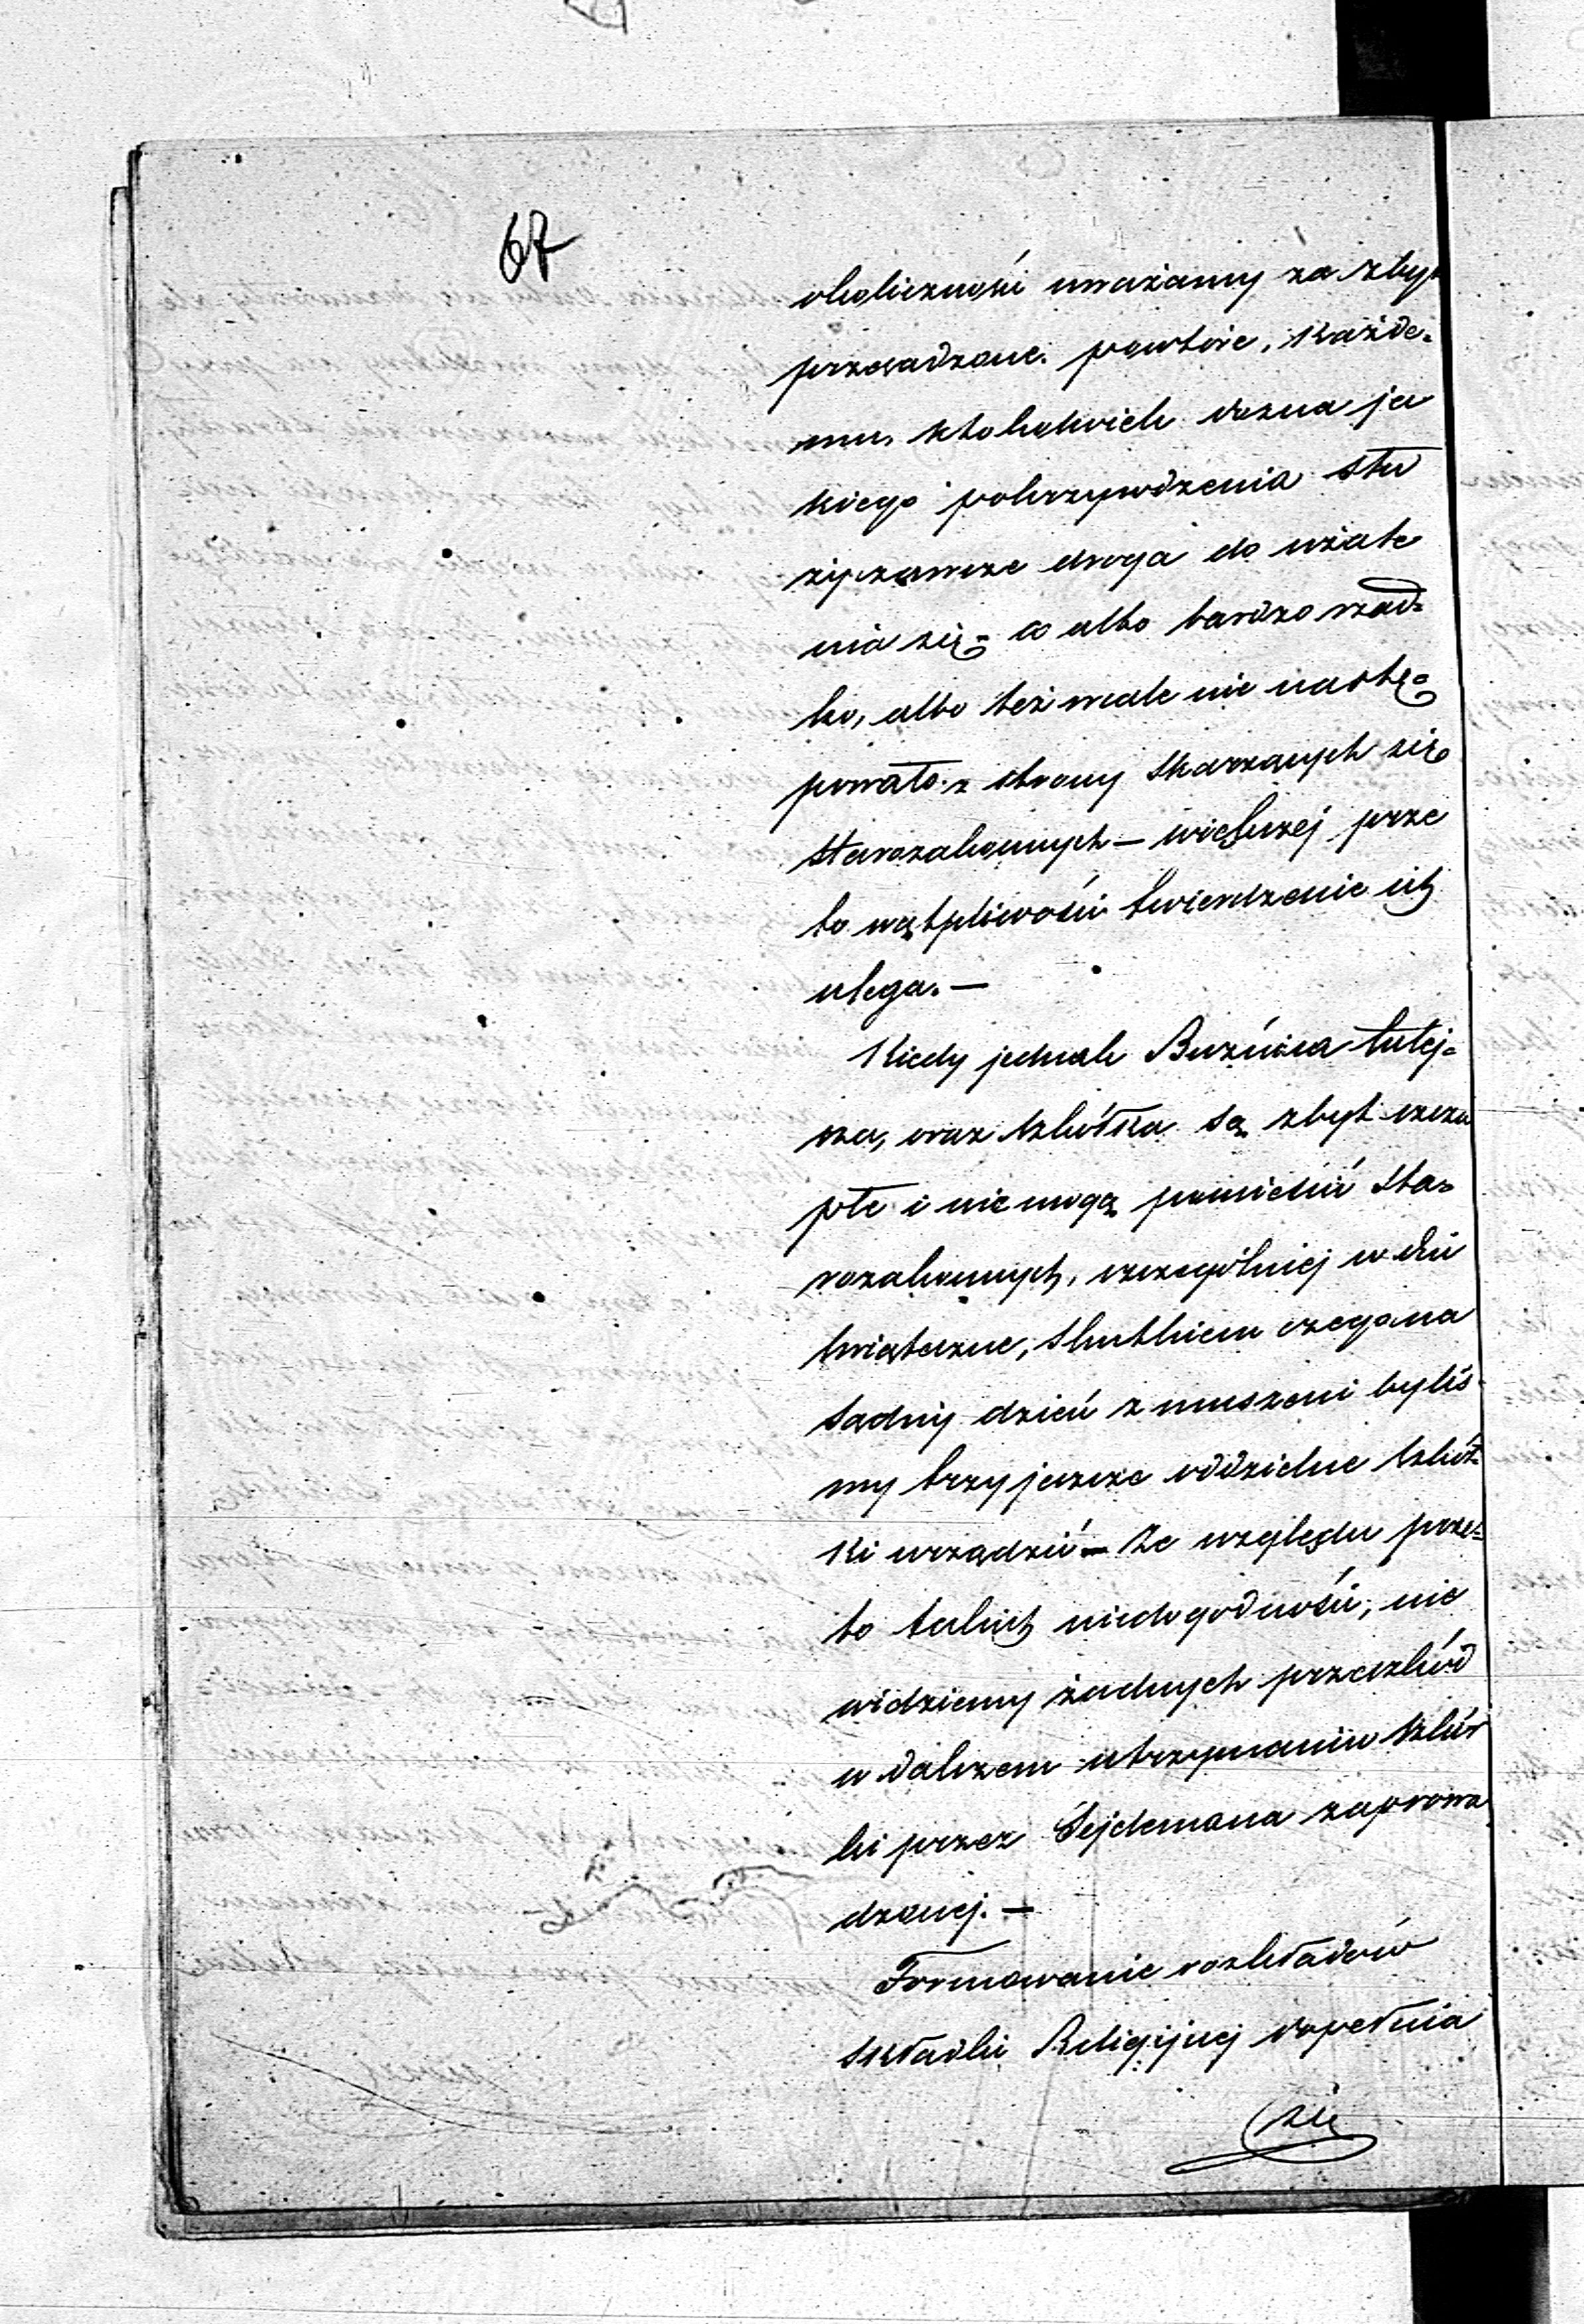 67
okoliczności uważamy za zbyt
przesadzone. powtóre, Każde-
mu, ktokolwiek dozna ja
kiego pokrzywdzenia słu
ży zawsze droga do użale
nia się - co albo bardzo rzad-
ko, albo też wcale nie nastę-
powało z strony skarżących się
starozakonnych — większej prze
to wątpliwości twierdzenie ich
ulega. —
Kiedy jednak Bużnica tutej-
sza, oraz szkółka są zbyt szczu
płe i nie mogą pomieścić sta-
rozakonnych, szczególniej w dni
świąteczne, skutkiem czego na
sądny dzień zmuszeni byliś-
my trzy jeszcze oddzielne szkół-
ki urządzić — Ze względu prze-
to takich niedogodności, nie
widziemy żadnych przeszkód
w dalszem utrzymaniu szkół
ki przez Sejdemana zaprowa
dzonej. —
Formowanie rozkładów
składki Religijnej dopełnia
się